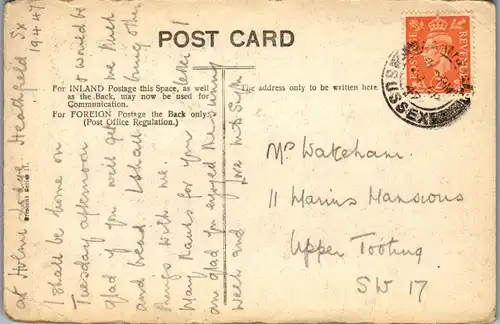 POST CARD
For INLAND Postage this Space, as well
as the Back, may now be used for
Communication.
For FOREIGN Postage the Back only:
(Post Office Regulation.)
The address only to be written here
POSTAGE
REVENUE
SUSSEX
at Holme Lodge Heathfield Sx
19 4 47
I shall be home on
Tuesday afternoon & would be
glad if you will get me Milk
and bread I shall bring other
things with me.
Many thanks for your letter I
am glad you enjoyed the sunny
week end
Love
Mr Wakeham.
11 Marius Mansions
Upper Tooting
SW 17